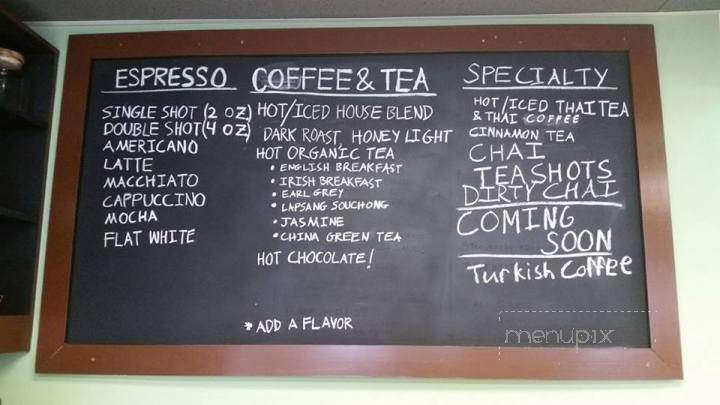 ESPRESSO
SINGLE SHOT (2 OZ)
DOUBLE SHOT (4 OZ)
AMERICANO
LATTE
MACCHIATO
CAPPUCCINO
MOCHA
FLAT WHITE
COFFEE & TEA
HOT/ICED HOUSE BLEND
DARK ROAST, HONEY LIGHT
HOT ORGANIC TEA
• ENGLISH BREAKFAST
• IRISH BREAKFAST
• EARL GREY
• LAPSANG SOUCHONG
• JASMINE
• CHINA GREEN TEA
HOT CHOCOLATE!
* ADD A FLAVOR
SPECIALTY
HOT/ICED THAI TEA
& THAI COFFEE
CINNAMON TEA
CHAI
TEA SHOTS
DIRTY CHAI
COMING
SOON
Turkish Coffee
menupix